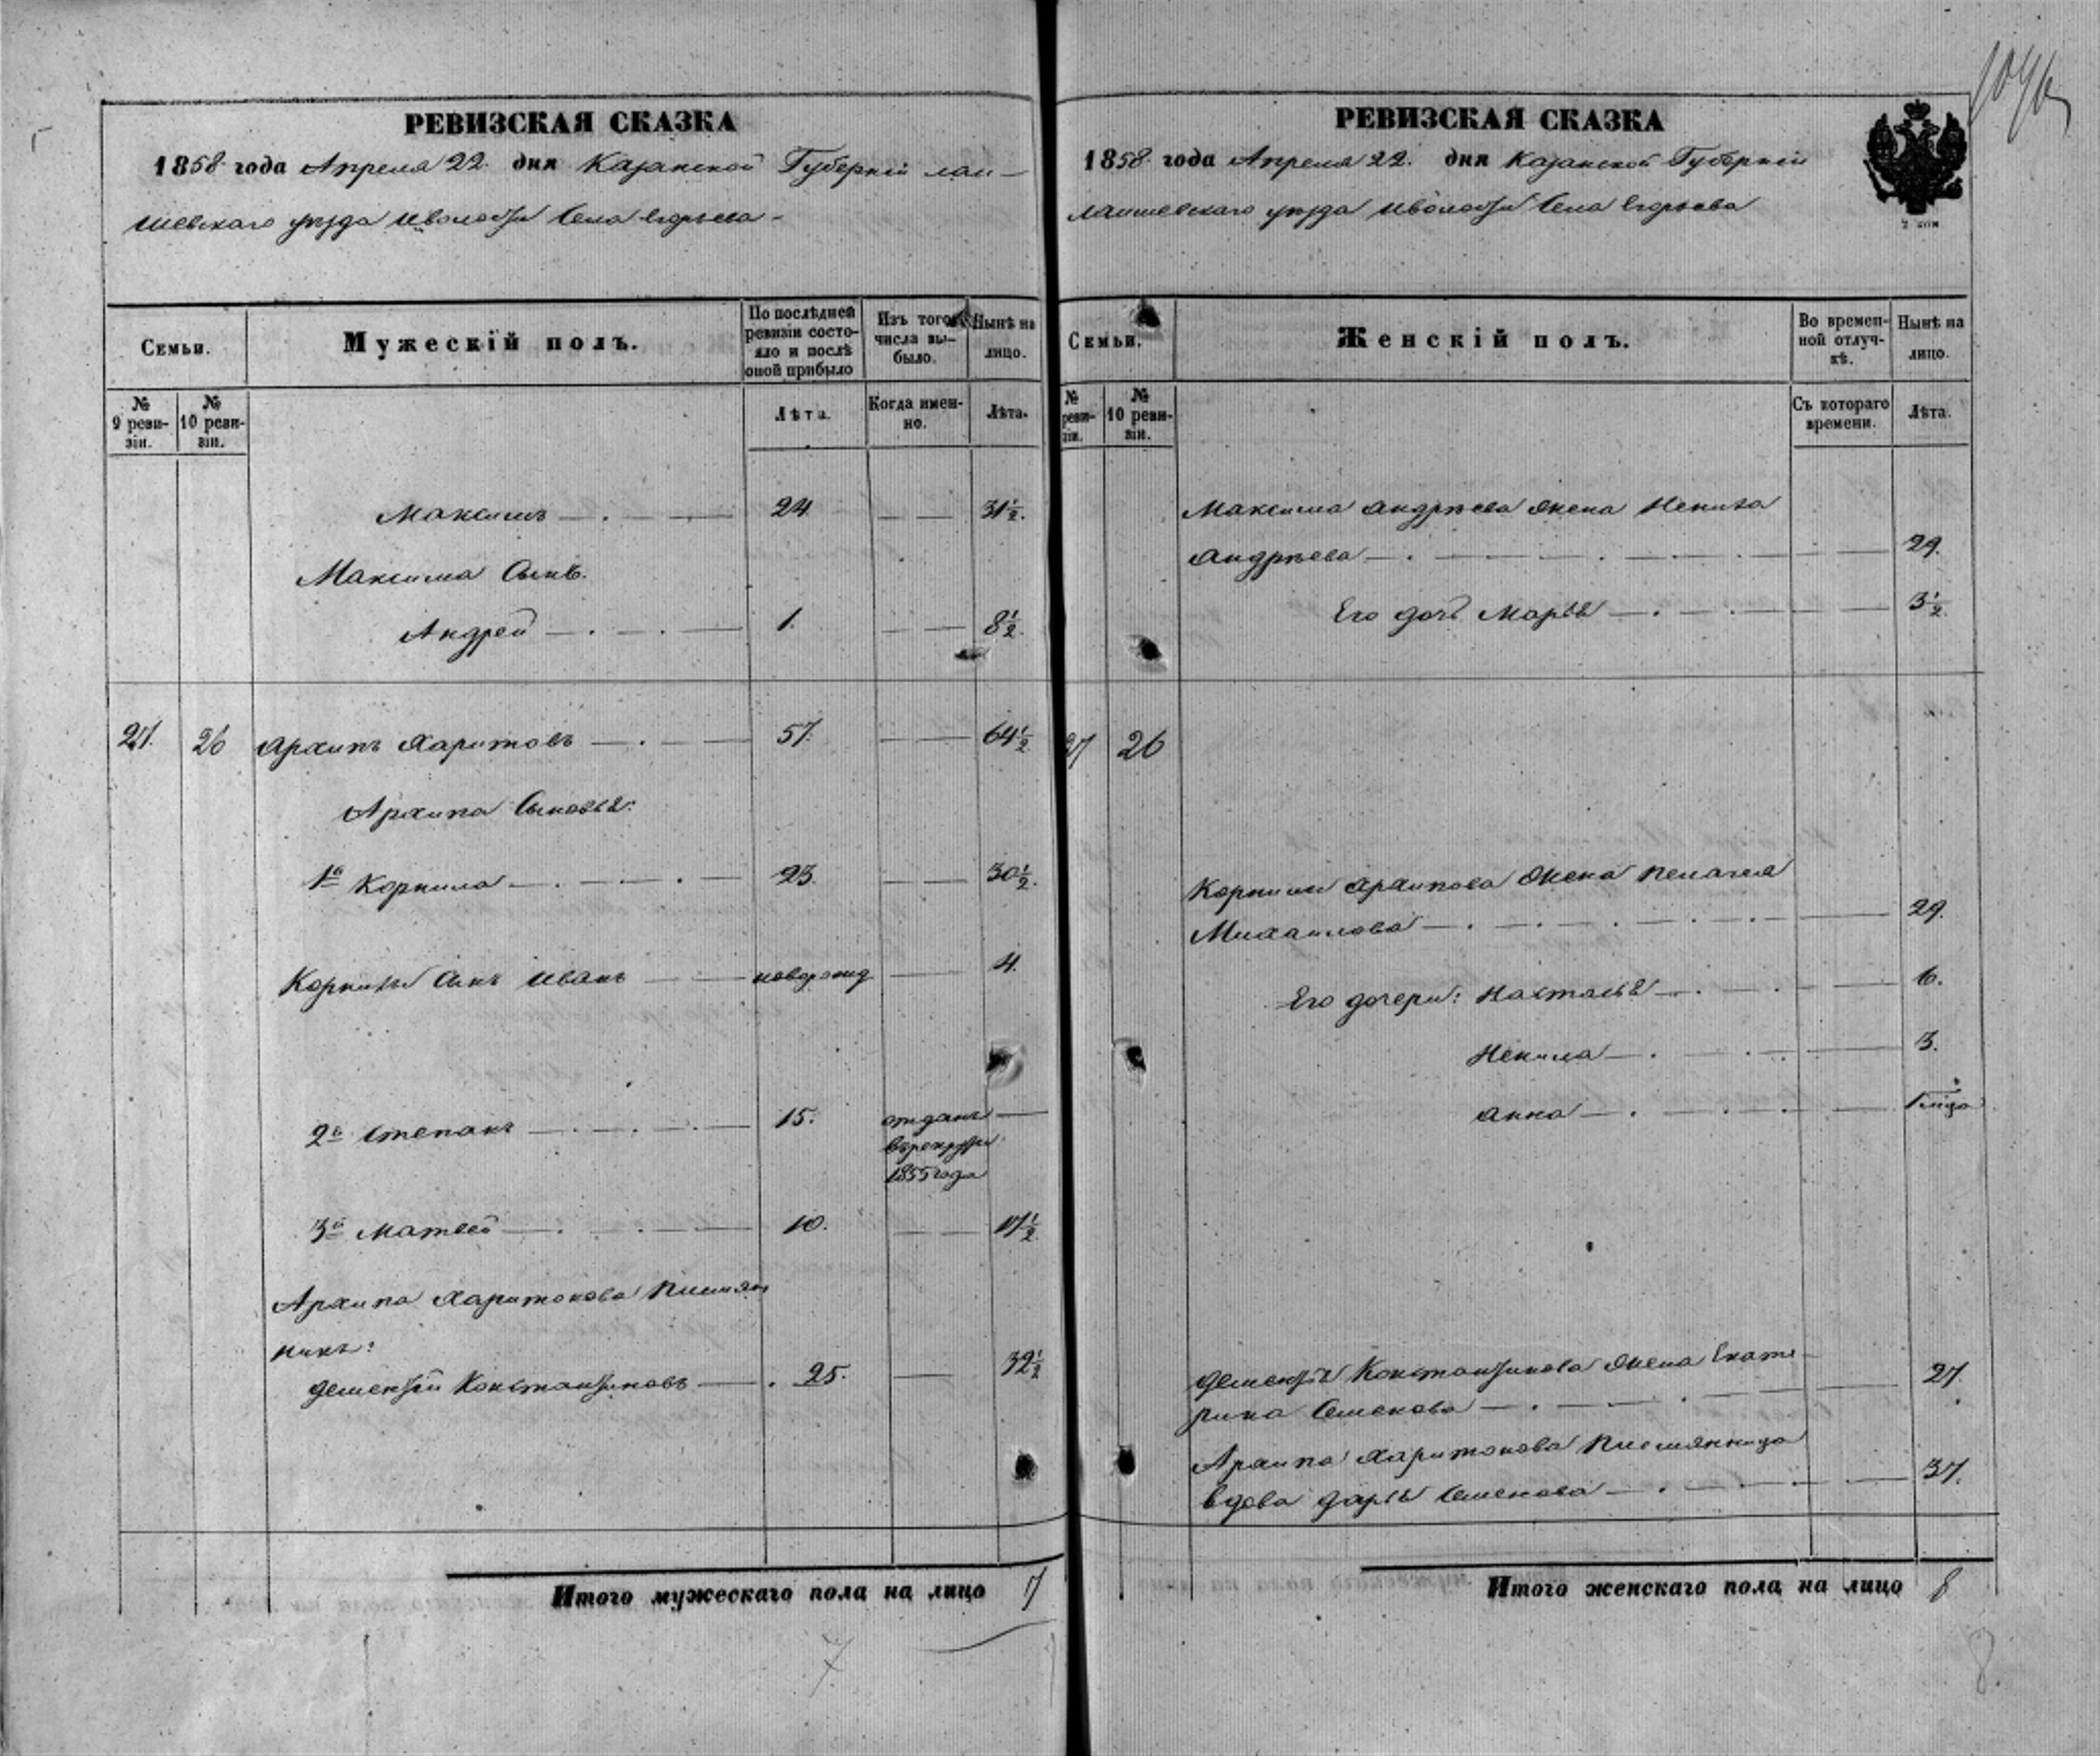 РЕВИЗСКАЯ СКАЗКА
1858 года Апреля 22 дня Казанской Губерніи лаи-
шевскаго уѣзда и волости Села Егорьева
Семьи.
Мужескій полъ.
По послѣдней ревизіи состо-
яло и послѣ оной прибыло
Изъ того числа вы-
было.
Нынѣ на лицо.
№ 9 реви-
зіи.
№ 10 реви-
зіи.
Лѣта.
Когда имен-
но.
Лѣта.
Максимъ 24 31½.
Максима Сынъ.
Андрей 1. 8½.
27. 26 Архипъ Харитовъ 57. 64½
Архипа Сыновья:
1й Корнила 23. 30½.
Корнилы сынъ Иванъ новорожд 4.
2й Степанъ 15. отданъ
въ рекруты
1855 года
3й Матвей 10. 17½
Архипа Харитонова Племян
никъ:
Дементій Константиновъ 25. 32½
Итого мужескаго пола на лицо 7
7
РЕВИЗСКАЯ СКАЗКА
1858 года Апреля 22. дня Казанской Губерніи
Лаишевскаго уѣзда и волости Села Егорьева
2 коп
Семьи.
Женскій полъ.
Во времен-
ной отлуч-
кѣ.
Нынѣ на лицо.
№ реви-
зіи.
№ 10 реви-
зіи.
Съ котораго времени.
Лѣта.
Максима Андрѣева жена Ненила
Андрѣева 29.
Его дочь Марья 3½
27 26
Корнилы Архипова жена Пелагея
Михаилова 29.
Его дочери: Настасья 6.
Ненила 3.
Анна
Дементія Константинова жена Екате
рина Семенова 27.
Архипа Харитонова Племянница
вдова Дарья Семенова 37.
Итого женскаго пола на лицо 8
8.